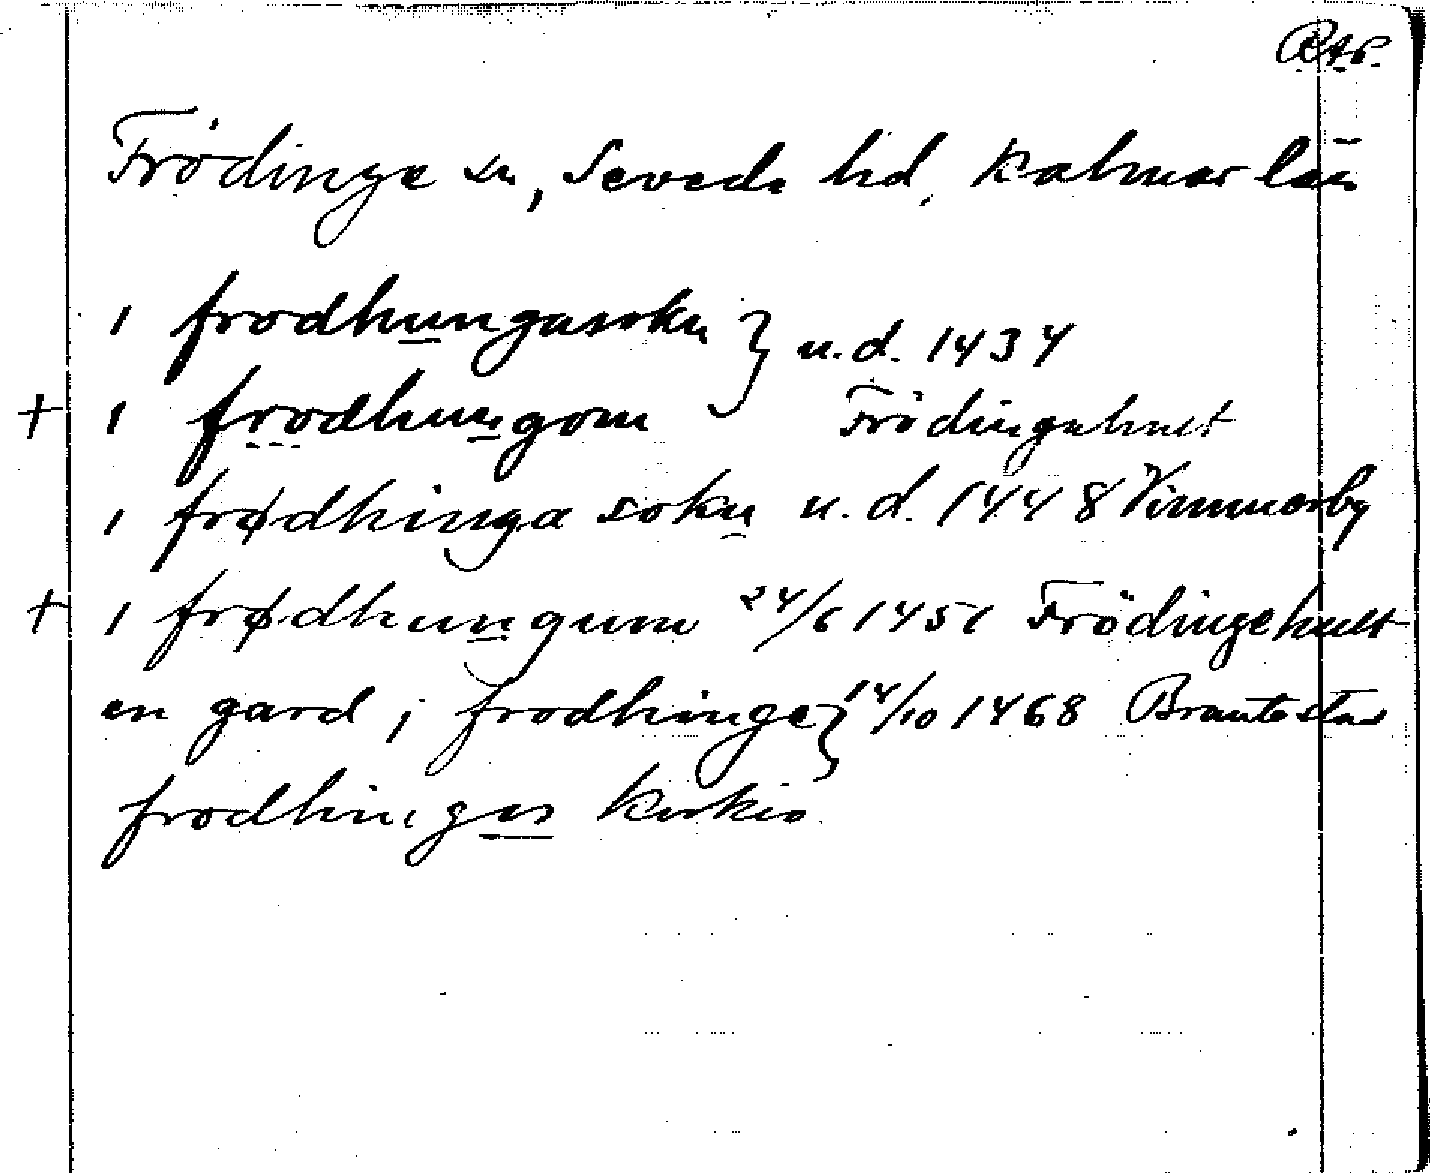 Frödinge sn, Sevede hd, Kalmar län
i frodhungasokn } u.d. 1434
+ i frodhungom Frödingehult
i frødhinga sokn u.d. 1448 Vimmerby
+ i frødhungum 24/6 1451 Frödingehult
en gard i frodhinge } 14/10 1468 Brantestad
frodhingas kirkio